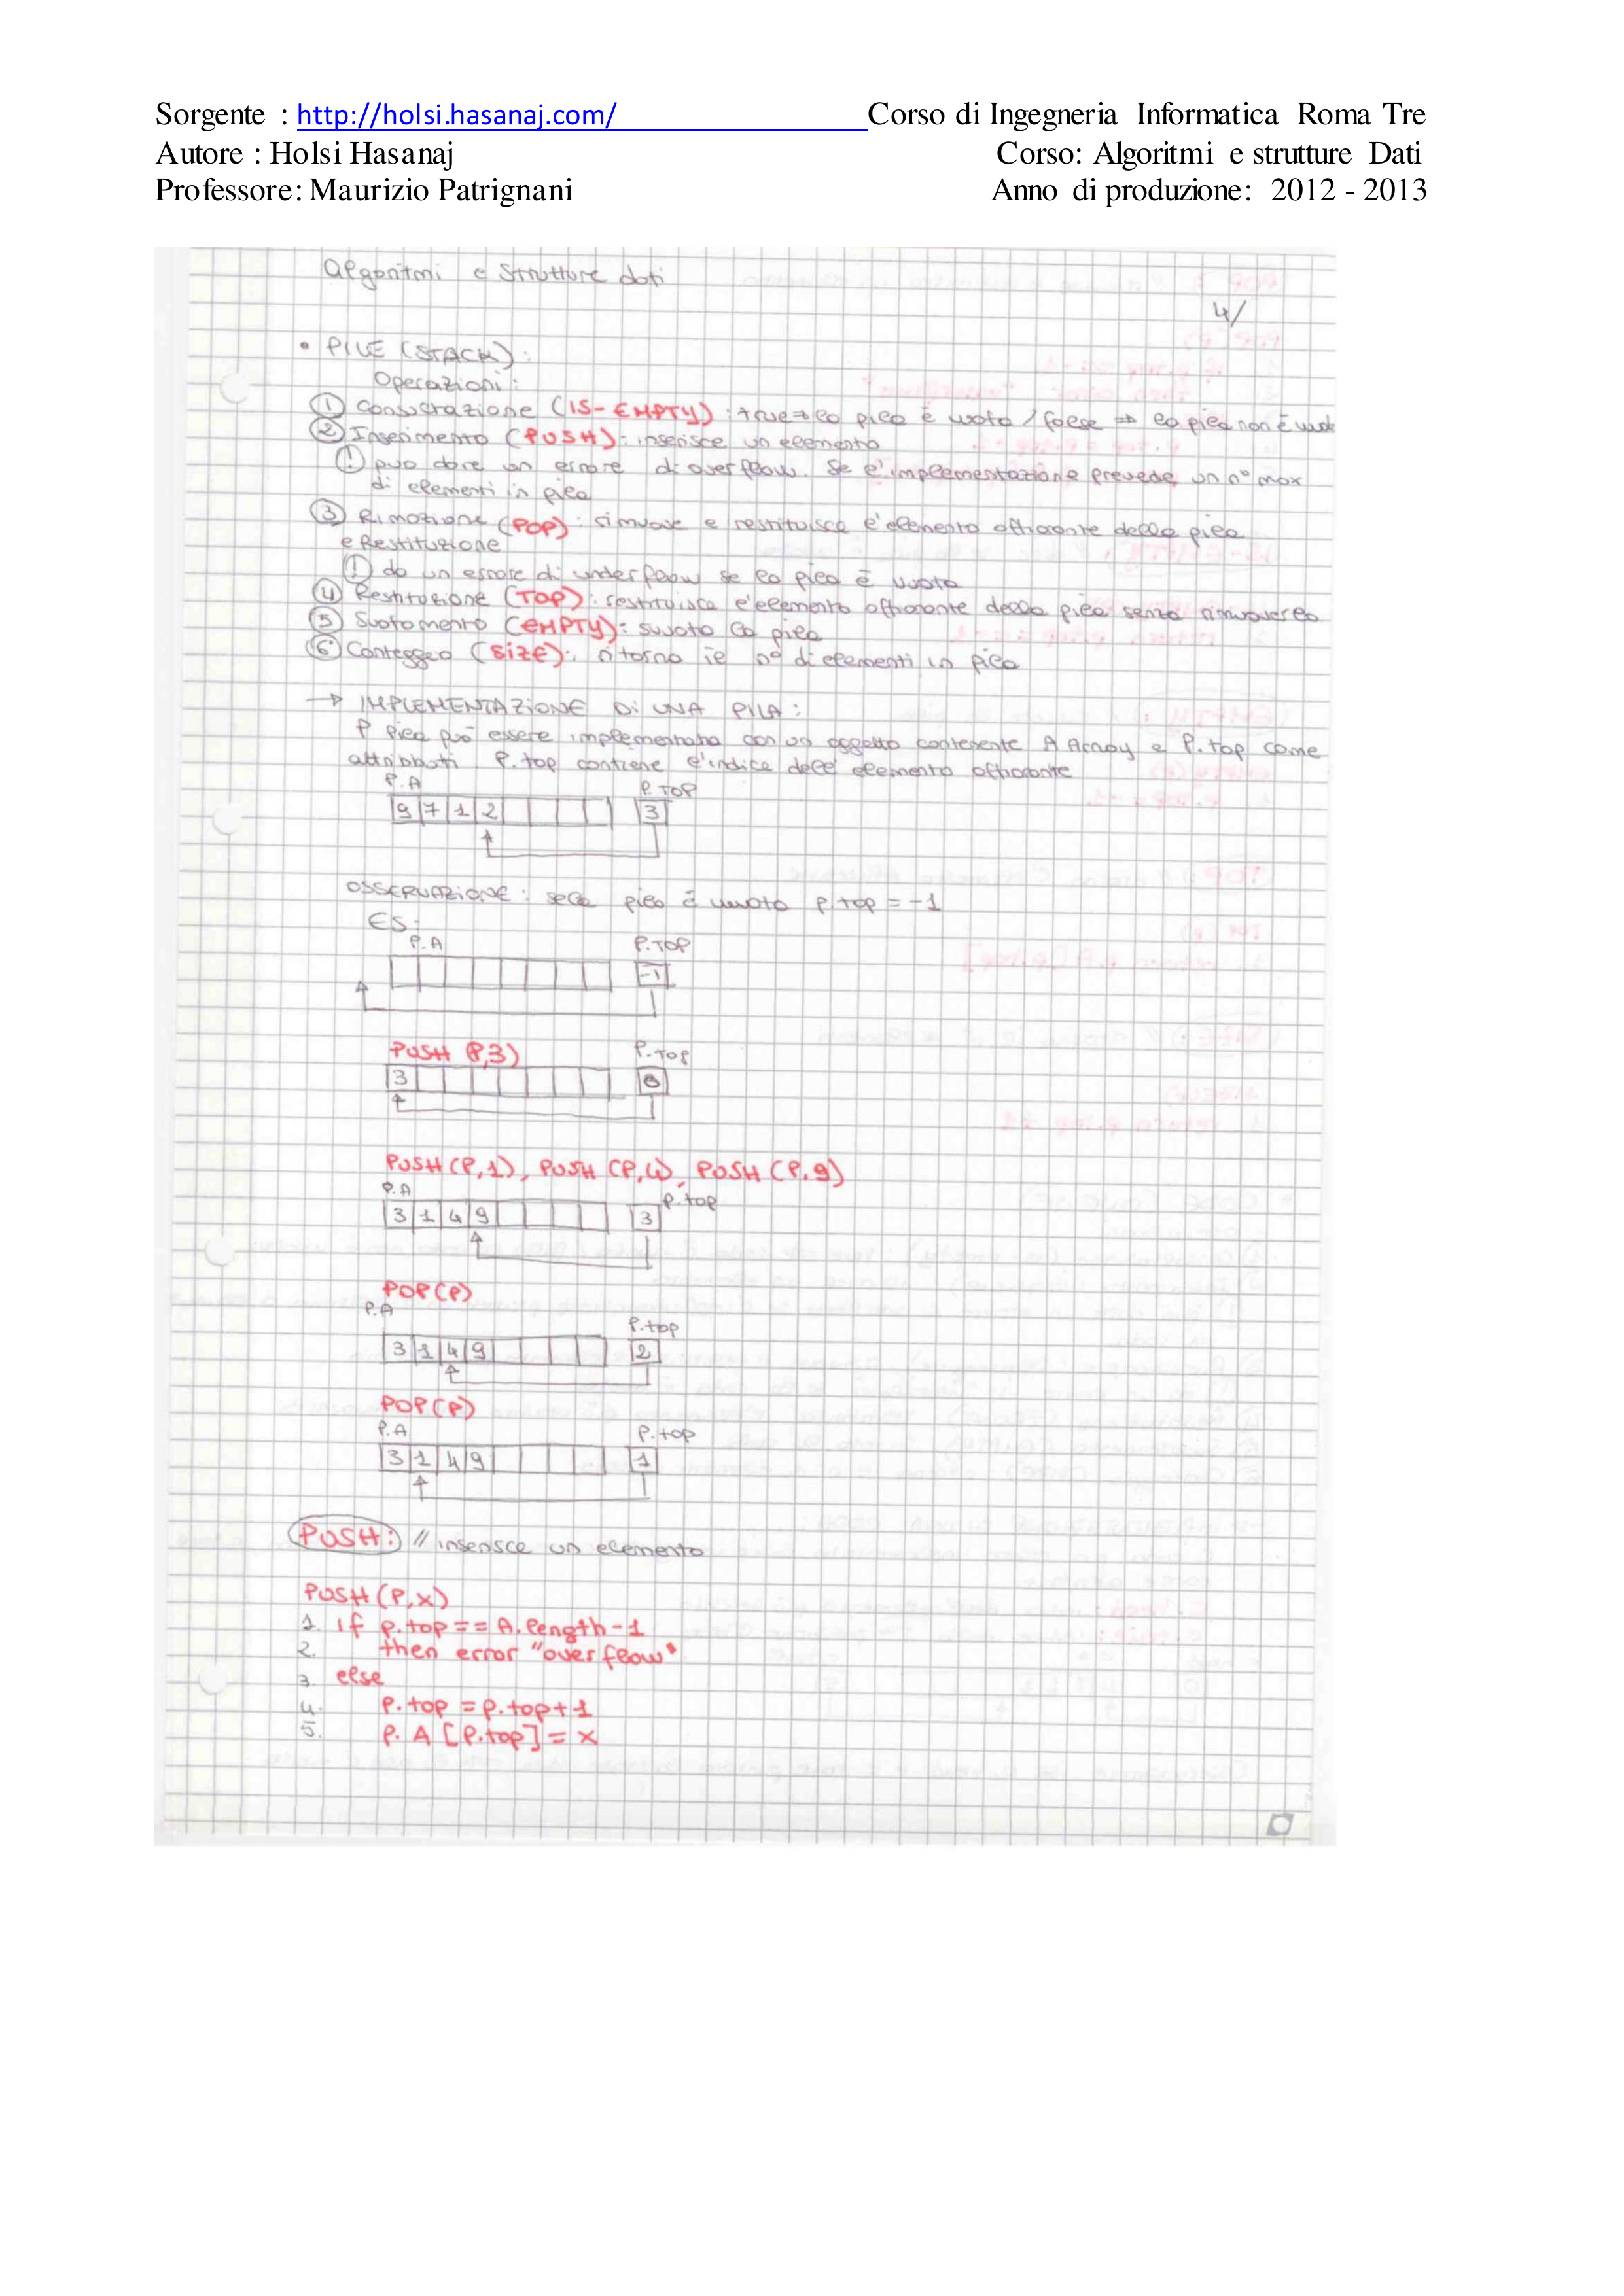 Sorgente : http://holsi.hasanaj.com/ Corso di Ingegneria Informatica Roma Tre
Autore : Holsi Hasanaj Corso: Algoritmi e strutture Dati
Professore: Maurizio Patrignani Anno di produzione: 2012 - 2013
Algoritmi e Strutture dati
4/
• PILE (STACK):
Operazioni:
① Consultazione (IS-EMPTY): true ⇒ la pila è vuota / false ⇒ la pila non è vuota
② Inserimento (PUSH): inserisce un elemento
! può dare un errore di overflow. Se l'implementazione prevede un n° max
di elementi in pila
③ Rimozione (POP): rimuove e restituisce l'elemento affiorante della pila
e Restituzione
! da un errore di underflow se la pila è vuota
④ Restituzione (TOP): restituisce l'elemento affiorante della pila senza rimuoverlo
⑤ Svuotamento (EMPTY): svuota la pila
⑥ Conteggio (SIZE): ritorna il n° di elementi in pila
→ IMPLEMENTAZIONE DI UNA PILA:
P pila può essere implementata con un oggetto contenente A Array e P.top come
attributi P.top contiene l'indice dell'elemento affiorante
P.A P.TOP
9 7 1 2 3
OSSERVAZIONE: se la pila è vuota P.top = -1
ES:
P.A P.TOP
-1
PUSH (P,3) P.TOP
3 0
PUSH(P,1), PUSH (P,4), PUSH (P,9)
P.A P.top
3 1 4 9 3
POP(P)
P.A P.top
3 1 4 9 2
POP(P)
P.A P.top
3 1 4 9 1
PUSH: // inserisce un elemento
PUSH(P,x)
1. if p.top == A.length-1
2. then error "overflow"
3. else
4. P.top = p.top+1
5. P.A [P.top] = x